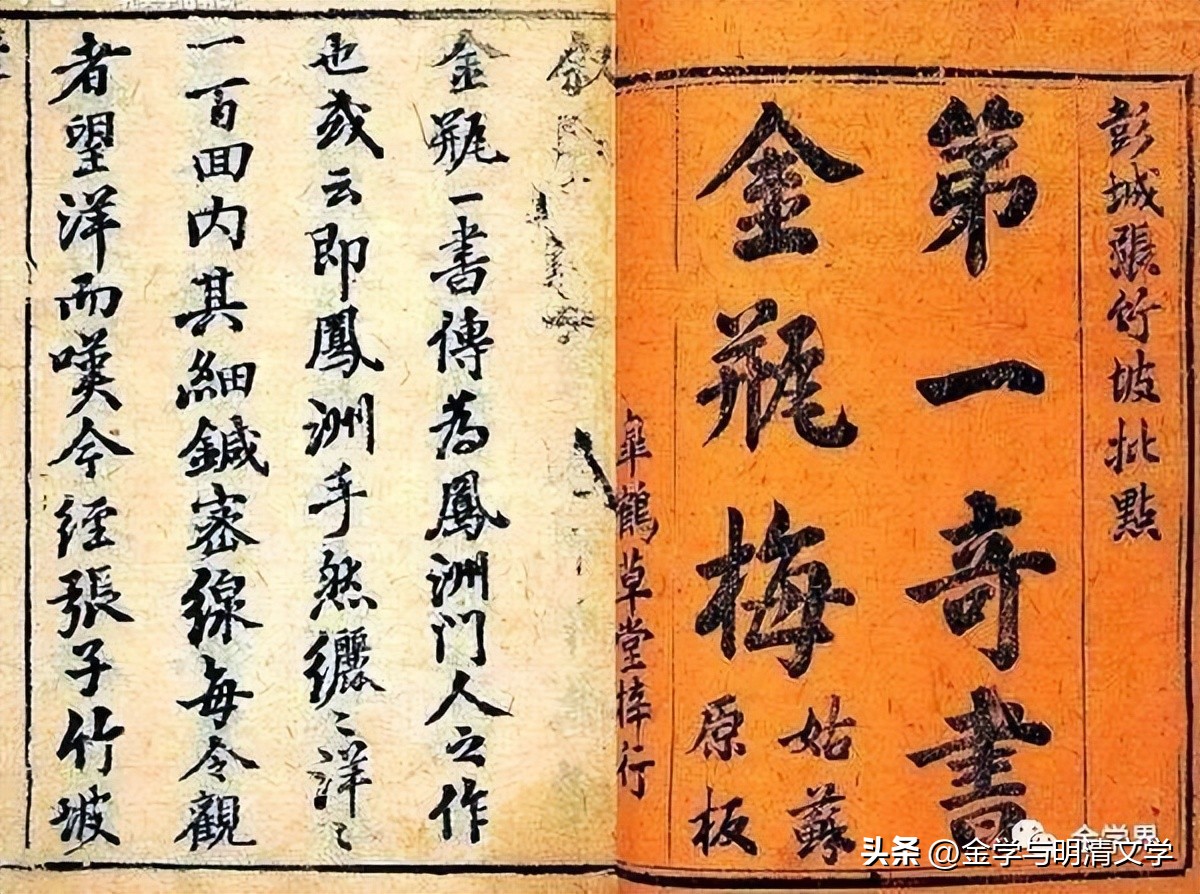 彭城張竹坡批點
第一奇書
金瓶梅
姑蘇
原板
皐鶴草堂梓行
金瓶一書傳為鳳洲門人之作
也或云即鳳洲手然纚〻洋〻
一百回内其細鍼密線每令觀
者望洋而嘆今經張子竹坡
金学界
头条 @金学与明清文学